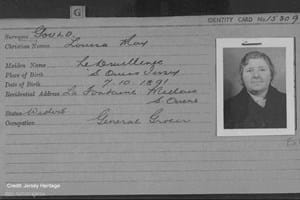 G
IDENTITY CARD No. 15809
Surname Gould.
Christian Names Louisa May
Maiden Name Le Druillenec
Place of Birth S. Ouens Jersey
Date of Birth 7-10-1891
Residential Address La Fontaine Millais
S Ouens
Status Widow
Occupation General Grocer
Credit Jersey Heritage